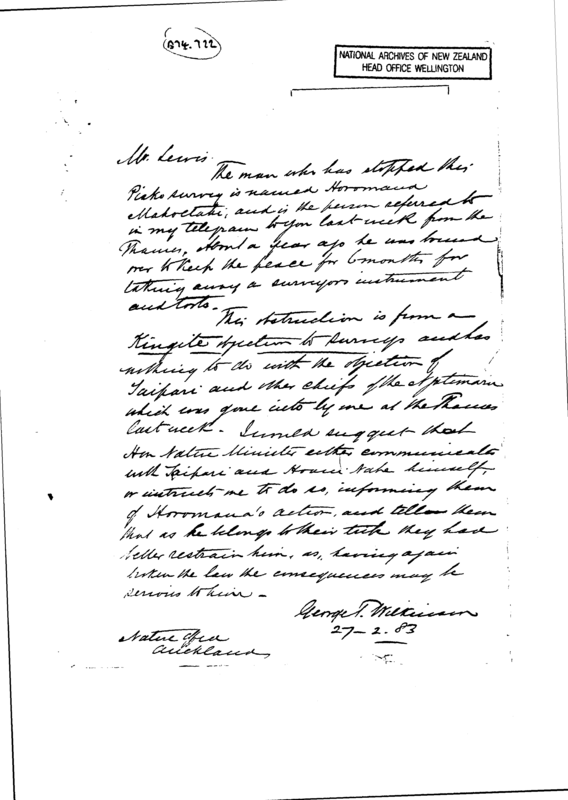 B74.722
NATIONAL ARCHIVES OF NEW ZEALAND
HEAD OFFICE WELLINGTON
Mr. Lewis.
The man who has stopped this
Piako survey is named Horomana
and is the person referred to
in my telegram to you last week from the
Thames. About a year ago he was bound
over to keep the peace for 6 months for
taking away a surveyors instrument
and tools.-
This obstruction is from a
Kingite objection to surveys and has
nothing to do with the objection of
Taipari and other chiefs of the Ngatimaru
which was gone into by me at the Thames
last week - I would suggest that
Hon Native Minister either communicate
with Taipari and Hoani Nahe himself,
or instruct me to do so, informing them
of Horomana's action, and tell them
that as he belongs to their tribe they had
better restrain him, as, having again
broken the law the consequences may be
serious to him -
George T. Wilkinson
27-2.83
Native Office
Auckland